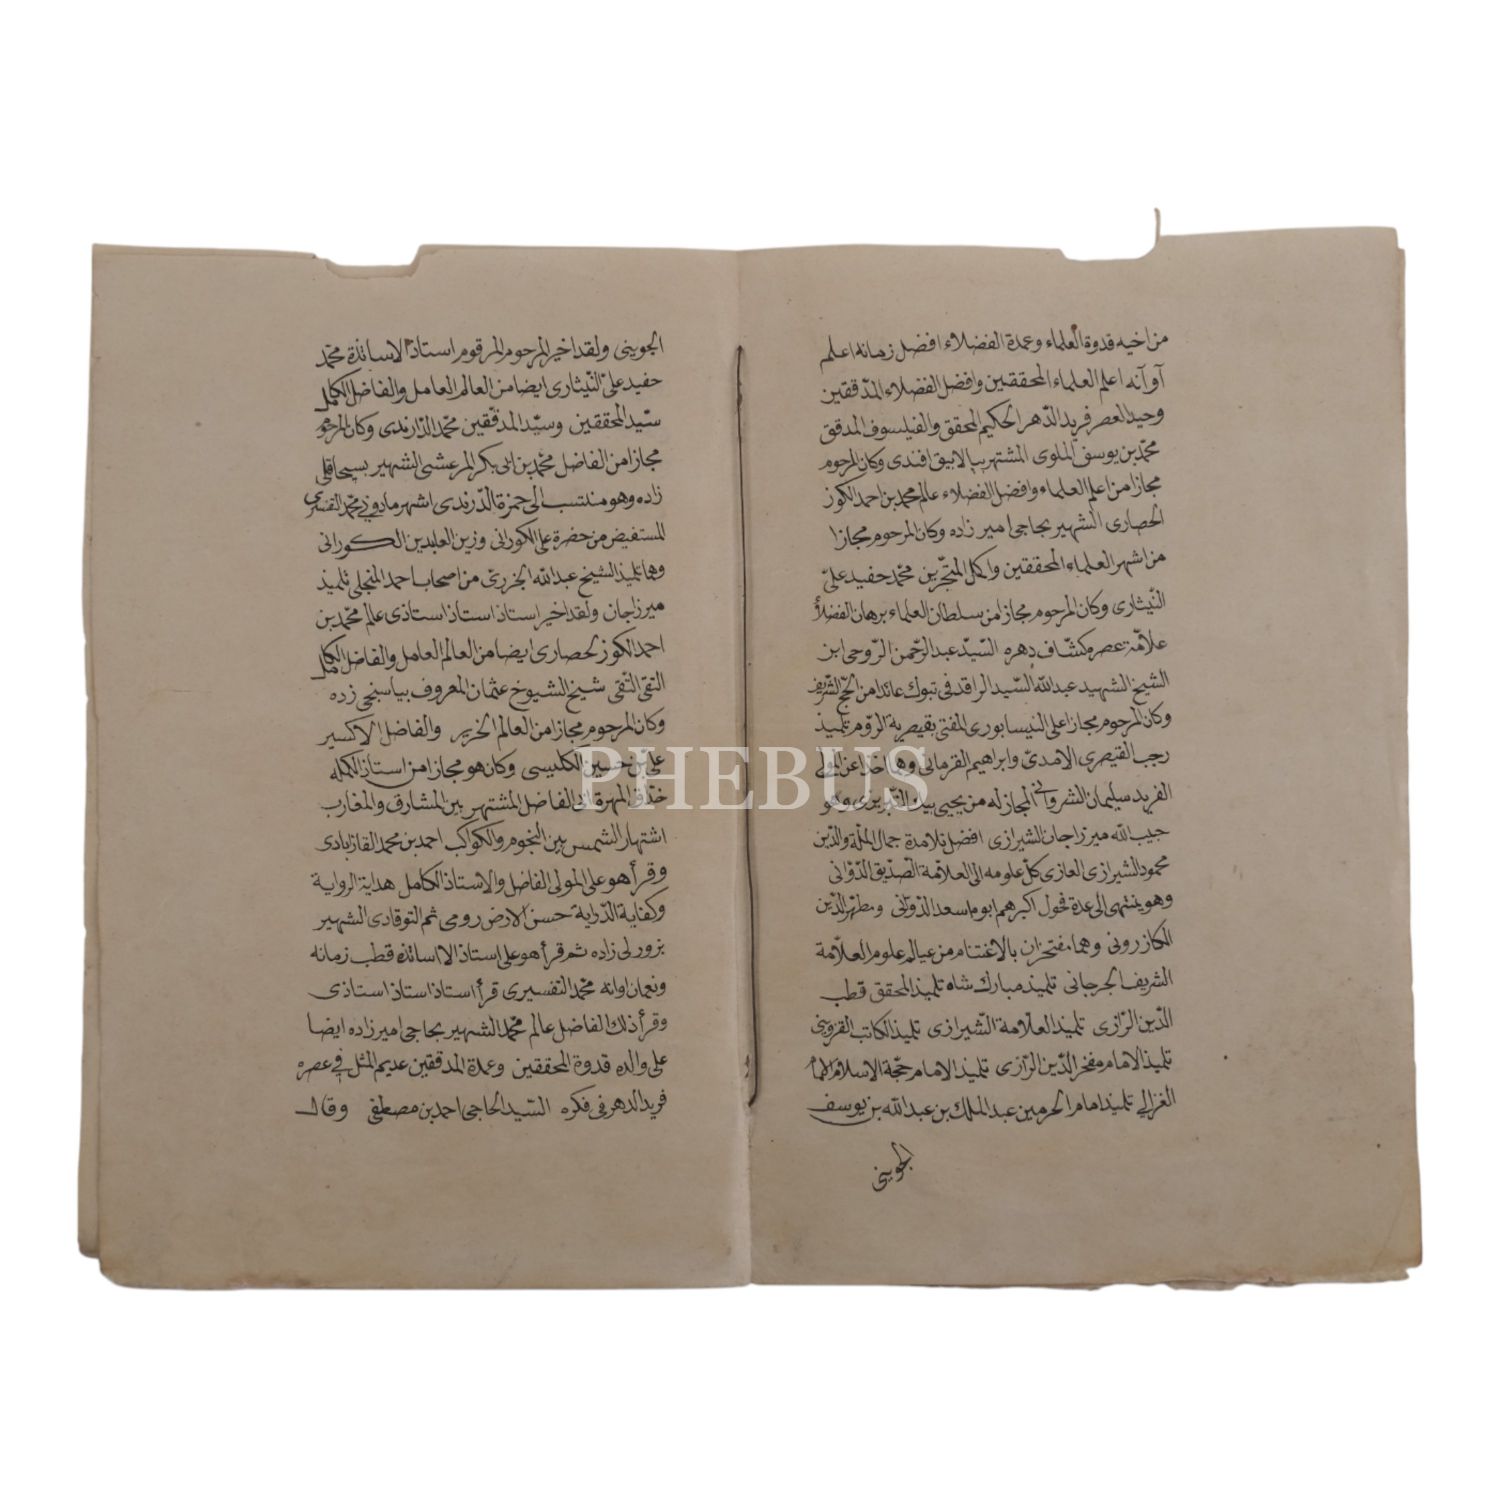 من اخيه قدوة العلماء وعمدة الفضلاء افضل زمانه اعلم
آوآنه اعلم العلماء المحققين وافضل الفضلاء المدققين
وحيد العصر فريد الدهر الحكيم المحقق والفيلسوف المدقق
محمد بن يوسف الملوى المشتهر بالابيق افندى وكان المرحوم
مجازا من اعلم العلماء وافضل الفضلاء عالم محمد بن احمد الكوز
الحصارى الشهير بحاجى امير زاده وكان المرحوم مجازا
من اشهر العلماء المحققين واكمل المتبحرين محمد حفيد على
النيثارى وكان المرحوم مجازا من سلطان العلماء برهان الفضلاء
علامة عصره كشاف دهره السيد عبد الرحمن الروحى ابن
الشيخ الشهيد عبد الله السيد الراقد فى تبوك عائدا من الحج الشريف
وكان المرحوم مجازا على النيسابورى المفتى بقيصرية الروم تلميذ
رجب القيصرى الامدى وابراهيم القرمانى وهما اخذا عن المولى
الفريد سيلمان الشروانى المجاز له من يحيى بيد التبريزى وهو
حبيب الله ميرزاجان الشيرازى افضل تلامدة جمال الملة والدين
محمود الشيرازى العازى كل علومه الى العلامة الصديق الدوانى
وهو ينتهى الى عدة فحول اكبرهم ابوه اسعد الدوانى ومظهر الدين
الكازرونى وهما مفتخران بالاغتنام من عيالم علوم العلامة
الشريف الجرجانى تلميذ مبارك شاه تلميذ المحقق قطب
الدين الرازى تلميذ العلامة الشيرازى تلميذ الكاتب القزوينى
تلميذ الامام مفخر الدين الرازى تلميذ الامام حجة الاسلام الامام
الغزالى تلميذ امام الحرمين عبد الملك بن عبد الله بن يوسف
الجوينى
الجوينى ولقد اخبر المرحوم المرقوم استاذ الاساتذة محمد
حفيد على النيثارى ايضا من العالم العامل والفاضل الكامل
سيد المحققين وسيد المدققين محمد الدارندى وكان المرحوم
مجازا من الفاضل محمد بن ابى بكر المرعشى الشهير بسيحاقلى
زاده وهو منتسب الى حمزة الدرندى اشهر ماذونى محمد التفسيرى
المستفيض من حضرة على الكورانى وزين العابدين الكورانى
وهما تلميذ الشيخ عبد الله الجزرى من اصحاب احمد المنجلى تلميذ
ميرزاجان ولقد اخبر استاذ استاذ استاذى عالم محمد بن
احمد الكوز الحصارى ايضا من العالم العامل والفاضل الكامل
التقى النقى شيخ الشيوخ عثمان المعروف بياسنجى زده
وكان المرحوم مجازا من العالم النحرير والفاضل الاكسير
على بن حسين الكلبيسى وكان هو مجازا من استاذ الكمله
حذاق المهرة ابى الفاضل المشتهر بين المشارق والمغارب
اشتهار الشمس بين النجوم والكواكب احمد بن محمد القازابادى
وقرأ هو على المولى الفاضل والاستاذ الكامل هداية الرواية
وكفاية الدراية حسن الارض رومى ثم التوقادى الشهير
بزورلى زاده ثم قرأ هو على استاذ الااساتذة قطب زمانه
ونعمان اوانه محمد التفسيرى قرأ استاذ استاذ استاذى
وقرأ ذلك الفاضل عالم محمد الشهير بحاجى اميرزاده ايضا
على والده قدوة المحققين وعمدة المدققين عديم المثل فى عصره
فريد الدهر فى فكره السيد الحاجى احمد بن مصطفى وقال
PHEBUS